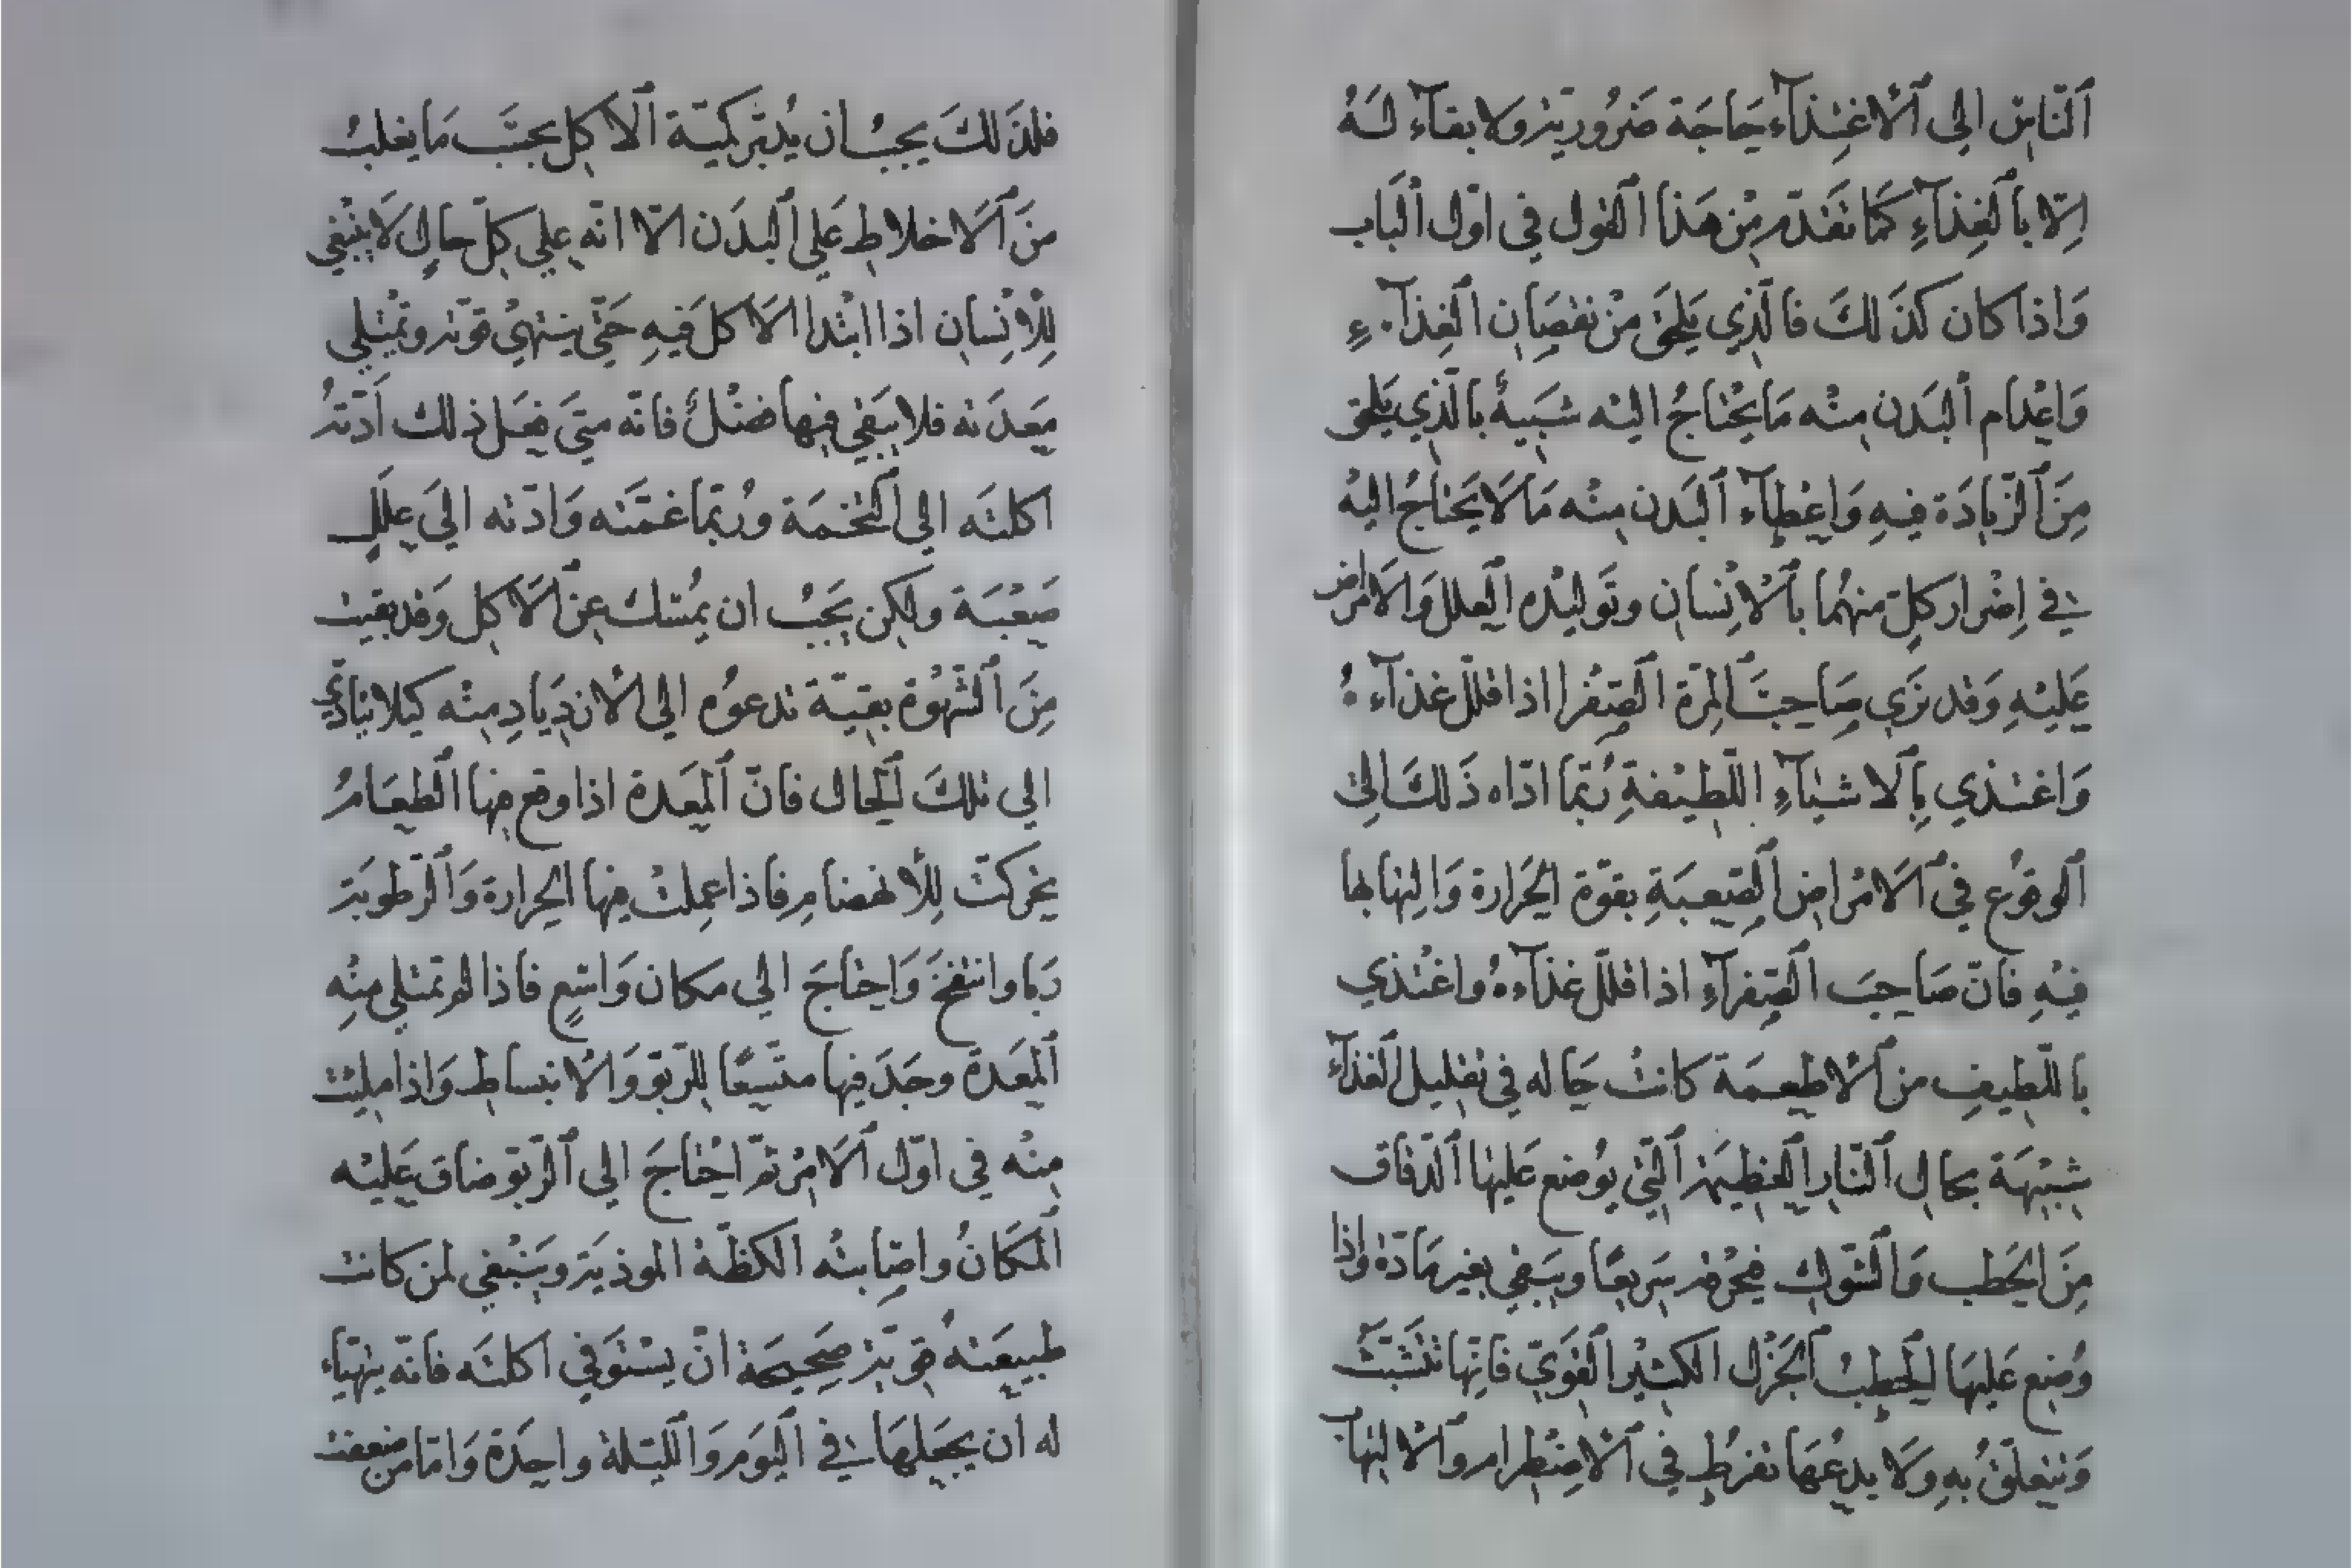 اَلنَّاسِ الى اَلْاغْتِذَآء حَاجَة ضَرُوريّة ولا بقآء لَهُ
اِلّا باَلغِذآءِ كَمَا تَقَدّم مِنْ هَذا اَلقول فى اوّل اَلبَاب
وَاذا كان كَذَلكَ فالّذِي يَلحَق مِنْ نقصَان اَلغِذآءِ
وَاعْدام اَلبَدن مِنْه مَا يَحْتاجُ اليْه شَبيهٌ بالّذِي يَلحَق
مِنَ اَلزّيادَة فيهِ وَاعْطآء اَلبَدن مِنْه مَا لَا يَحْتاجُ اليْه
في اِضْرار كلّ منهُما باَلْانْسان وتَوليْده اَلعلل وَالَامْراض
عَليْهِ وَقد نَرَى صَاحِبَ اَلمرّة اَلصّفرا اذا قلّل غذآءهُ
وَاغتَذي بِاَلاشْيآءِ اللّطيْفةِ رُبّما ادّاه ذَلكَ الِى
اَلوقوُع فى اَلَامْراض اَلصّعبَةِ بقوّة الحَرَارة وَالتِهابها
فيْهِ فانّ صَاحِبَ اَلصّفرآءِ اذا قلّل غذآءهُ واغْتذي
باللّطيفِ من اَلْاطعمَة كانتْ حَاله فِى تقليل اَلغذآء
شبيْهَة بحال اَلنّار اَلعَظيمَة اَلتّى يُوضع عَليْها اَلدّقاق
مِنَ الحَطب وَاَلشّوك فتحْرقه سَريعًا ويَبقي بغير مَادّة واذا
وُضع عَليْهَا اَلحَطبُ اَلجَزْل الكثيْر اَلقَويّ فانّها تتَشبّث
وَتتعلّقُ بهِ وَلَا يدعُهَا تفرُط فِى اَلْاضْطرام واَلْالتِهاب
فلذَلكَ يجبُ ان يُدبّر كميّة اَلاكل بحَسَب مَا يغلبُ
منَ اَلَاخلاط عَلى اَلبدَن الّا انّه على كلّ حالٍ لَا ينْبَغي
لِلْانْسان اذا ابْتدا الَاكل فَيهِ حَتّى ينتهيْ قوّته وتمْتلي
مَعدَته فلا يبَقى فيها فضْلٌ فانّه متىَ فعَل ذلك اَدّتهُ
اكلتَه الى اَلتّخمَة ورُبّما غمّتْه وَادّته الىَ عللٍ
صَعْبَة ولكن يَجبُ ان يمُسك عن اَلَاكل وَقد بقيت
مِنَ اَلشّهْوَة بقيّة تدعوُه الى اَلْازدِيادِ مِنْه كيلا يتادّي
الى تلكَ اَلحال فانّ اَلمعَدة اذا وقع فيها اَلطعَامُ
تحَركتّ لِلْانهضام فاذا عمِلتْ فيها الحَرارة وَاَلرّطوبَة
رَبا وانتفخَ وَاحتاجَ الى مكان وَاسعٍ فاذا لم تمتلي منْهِ
اَلمعَدة وجَدَ فيها متّسعًا للرّبوّ وَالْانبساط وَاذا ملئتْ
مِنْه فى اوّل اَلَامْر ثمّ احْتاجَ الى اَلرّبوّ ضاق عَليْه
اَلمكَانُ واصَابتْه الكظّة الموذيَة ويَنْبَغي لمن كانتْ
طبيعَتهُ قويّة صَحِيحَة انْ يسْتَوفى اكلتَه فانّه يتهيّاء
له ان يجعَلهَا في اَليَوم وَاللّيْلة واحِدَة وَامّا من ضعفت